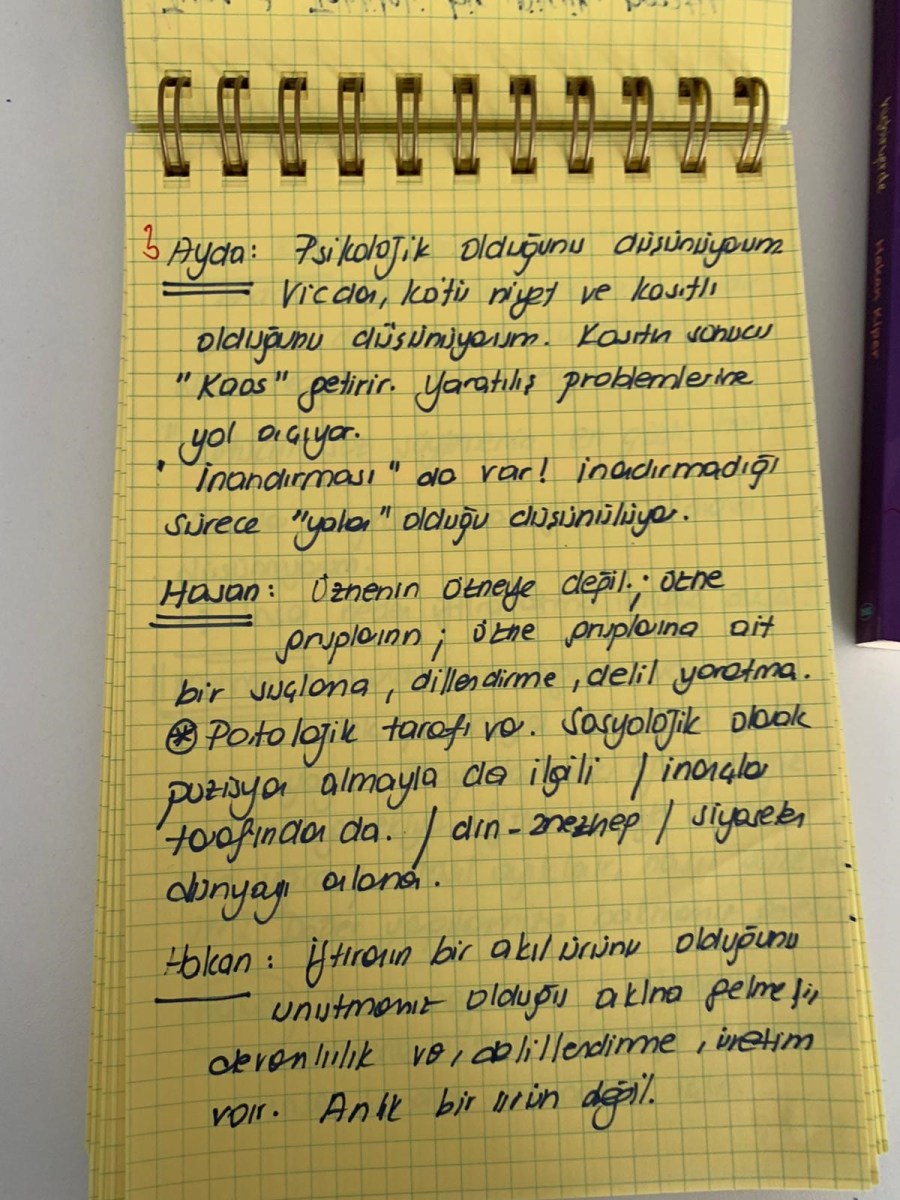 3 Ayda: Psikolojik olduğunu düşünüyorum
Vicdan, kötü niyet ve kasıtlı
olduğunu düşünüyorum. Kasıtın sonucu
"Kaos" getirir. Yaratılış problemlerine
yol açıyor.
" İnandırması" da var! inandırmadığı
sürece "yalan" olduğu düşünülüyor.
Hasan: Öznenin ötneye değil.; ötne
grupların; ötne gruplarına ait
bir suçlama, dillendirme, delil yaratma.
* Patolojik tarafı var. Sosyolojik olarak
pozisyon almayla da ilgili / inançlar
tarafından da. / din-mezhep / siyaseten
dünyayı
Hakan: İftiranın bir akıl ürünü olduğunu
olduğu aklına
var, delillendirme, üretim
var. Anlık bir ürün değil.
Hakan Kıyıcı